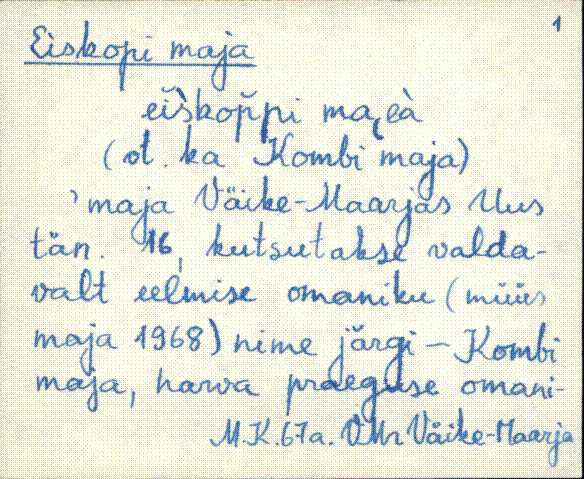 1
Eiskopi maja
eiškoppi maꞔeà
(vt. ka Kombi maja)
'maja Väike-Maarjas Uus
tän. 16, kutsutakse valda-
valt eelmise omaniku (müüs
maja 1968) nime järgi – Kombi
maja, harva praeguse omani-
M.K. 67a. VMr Väike-Maarja